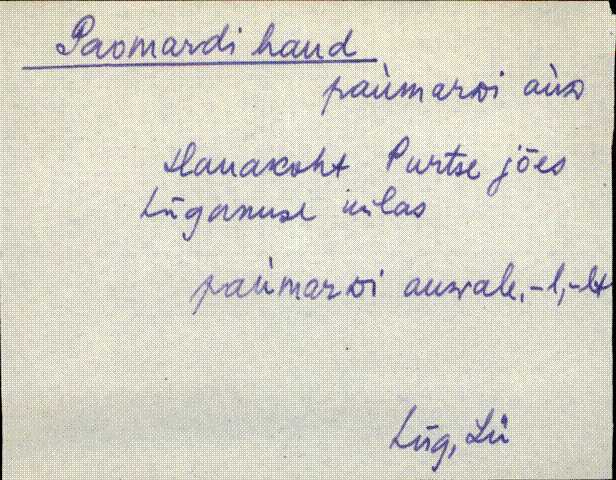 Paomardi haud
paùmarDi aùD
Hauakoht Purtse jões
Lüganuse külas
paùmarDi auwale, -l, -lt
Lüg, Lü